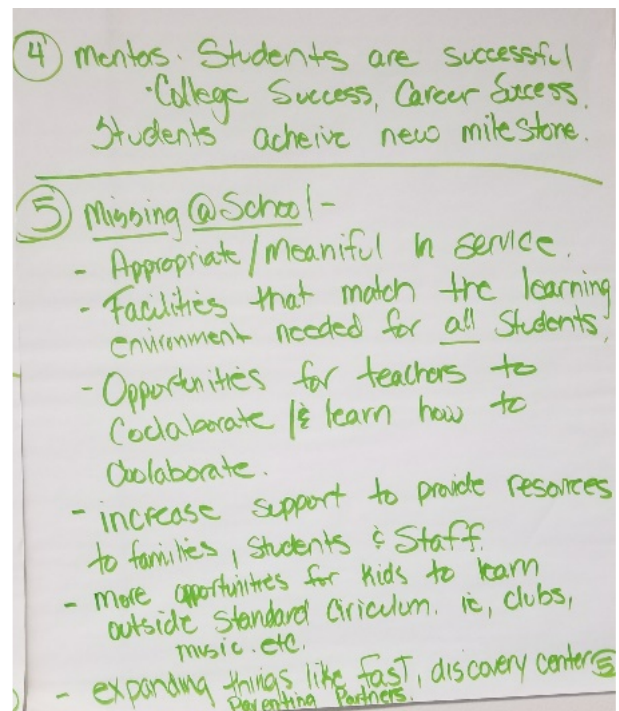 4 mentors. Students are successful
·College Success, Career Success.
Students acheive new milestone.
5 Missing @ School -
- Appropriate/Meaniful in service.
- Facilities that match the learning
environment needed for all Students,
- Opportunities for teachers to
Coclaborate /& learn how to
Coolaborate.
- increase support to provide resources
to families, Students & Staff.
- more opportunities for kids to learn
outside Standard Ciriculum. ie, clubs,
music. etc.
- expanding things like fast, discovery center
Parenting Partners.